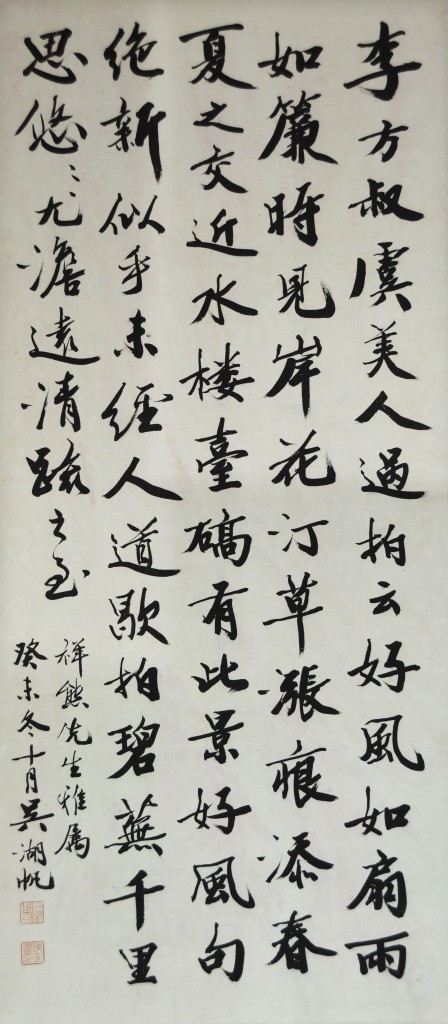 李方叔虞美人過拍云好風如扇雨
如簾時見岸花汀草漲痕添春
夏之交近水楼臺礄有此景好風句
绝新似乎未經人道歇拍碧蕪千里
思悠〻尤澹遠清驗之至
祥熊先生雅属
癸未冬十月吴湖帆